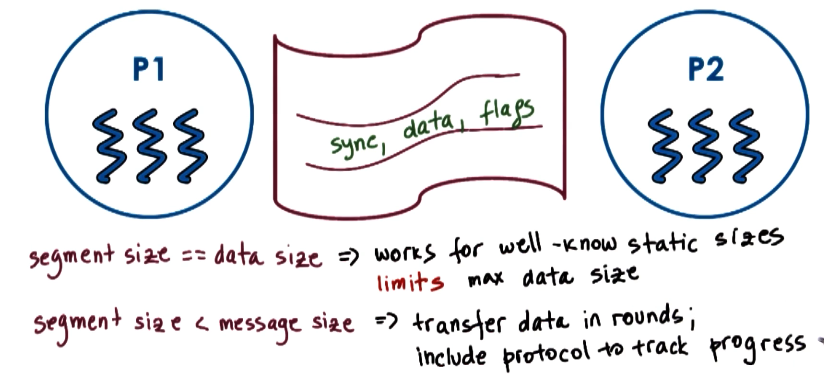 P1
P2
sync, data, flags
segment size == data size => works for well-know static sizes
limits max data size
segment size < message size => transfer data in rounds;
include protocol to track progress